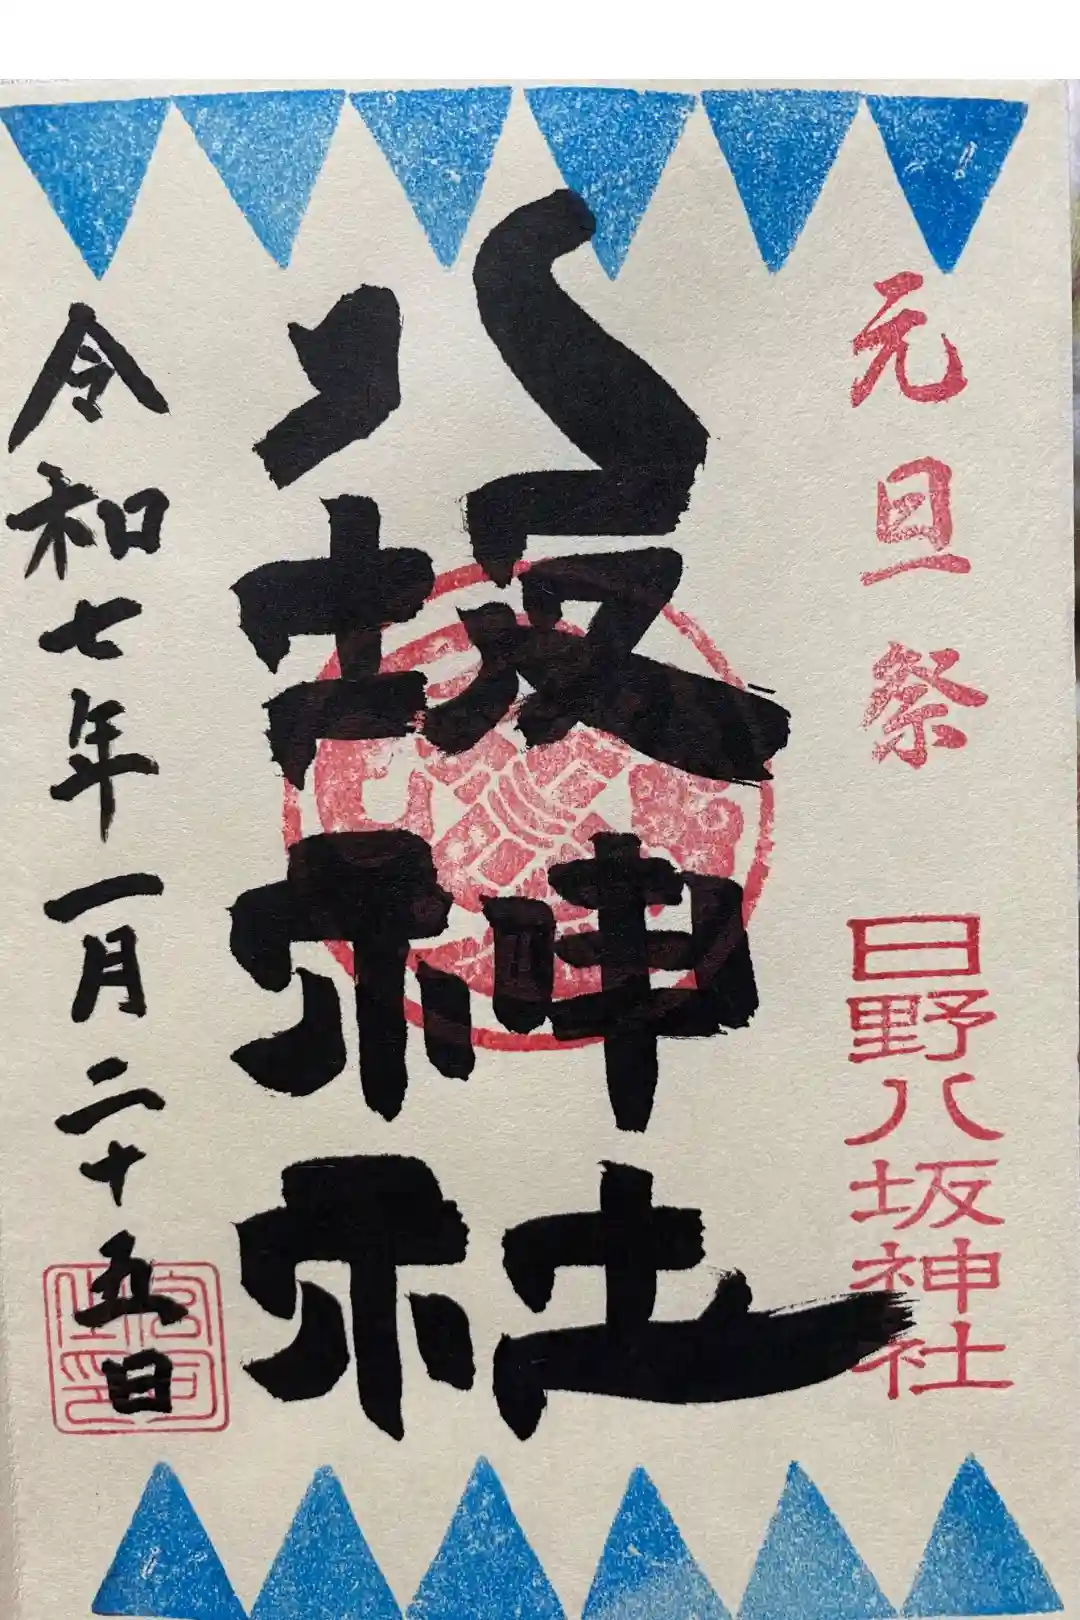 元旦祭
日野八坂神社
八坂神社
令和七年一月二十五日